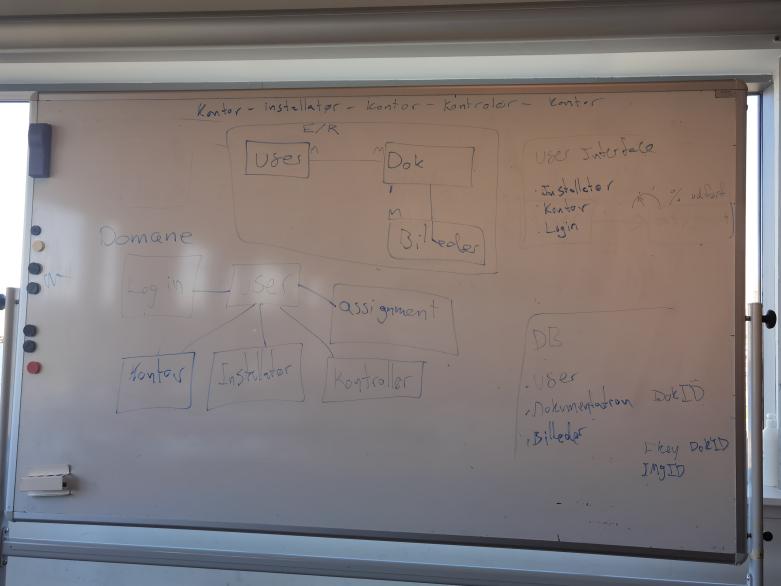 Kontor - installatør - kontor - Kontrolør - kontor
E/R
User n m Dok
1
m
Billeder
User Interface
· Installatør
· Kontor
· Login
% udført
Domæne
Log in
User
assignment
Kontor
Installatør
Kontroller
DB
· User
· Dokumentation DokID
· Billeder
Fkey DokID
ImgID